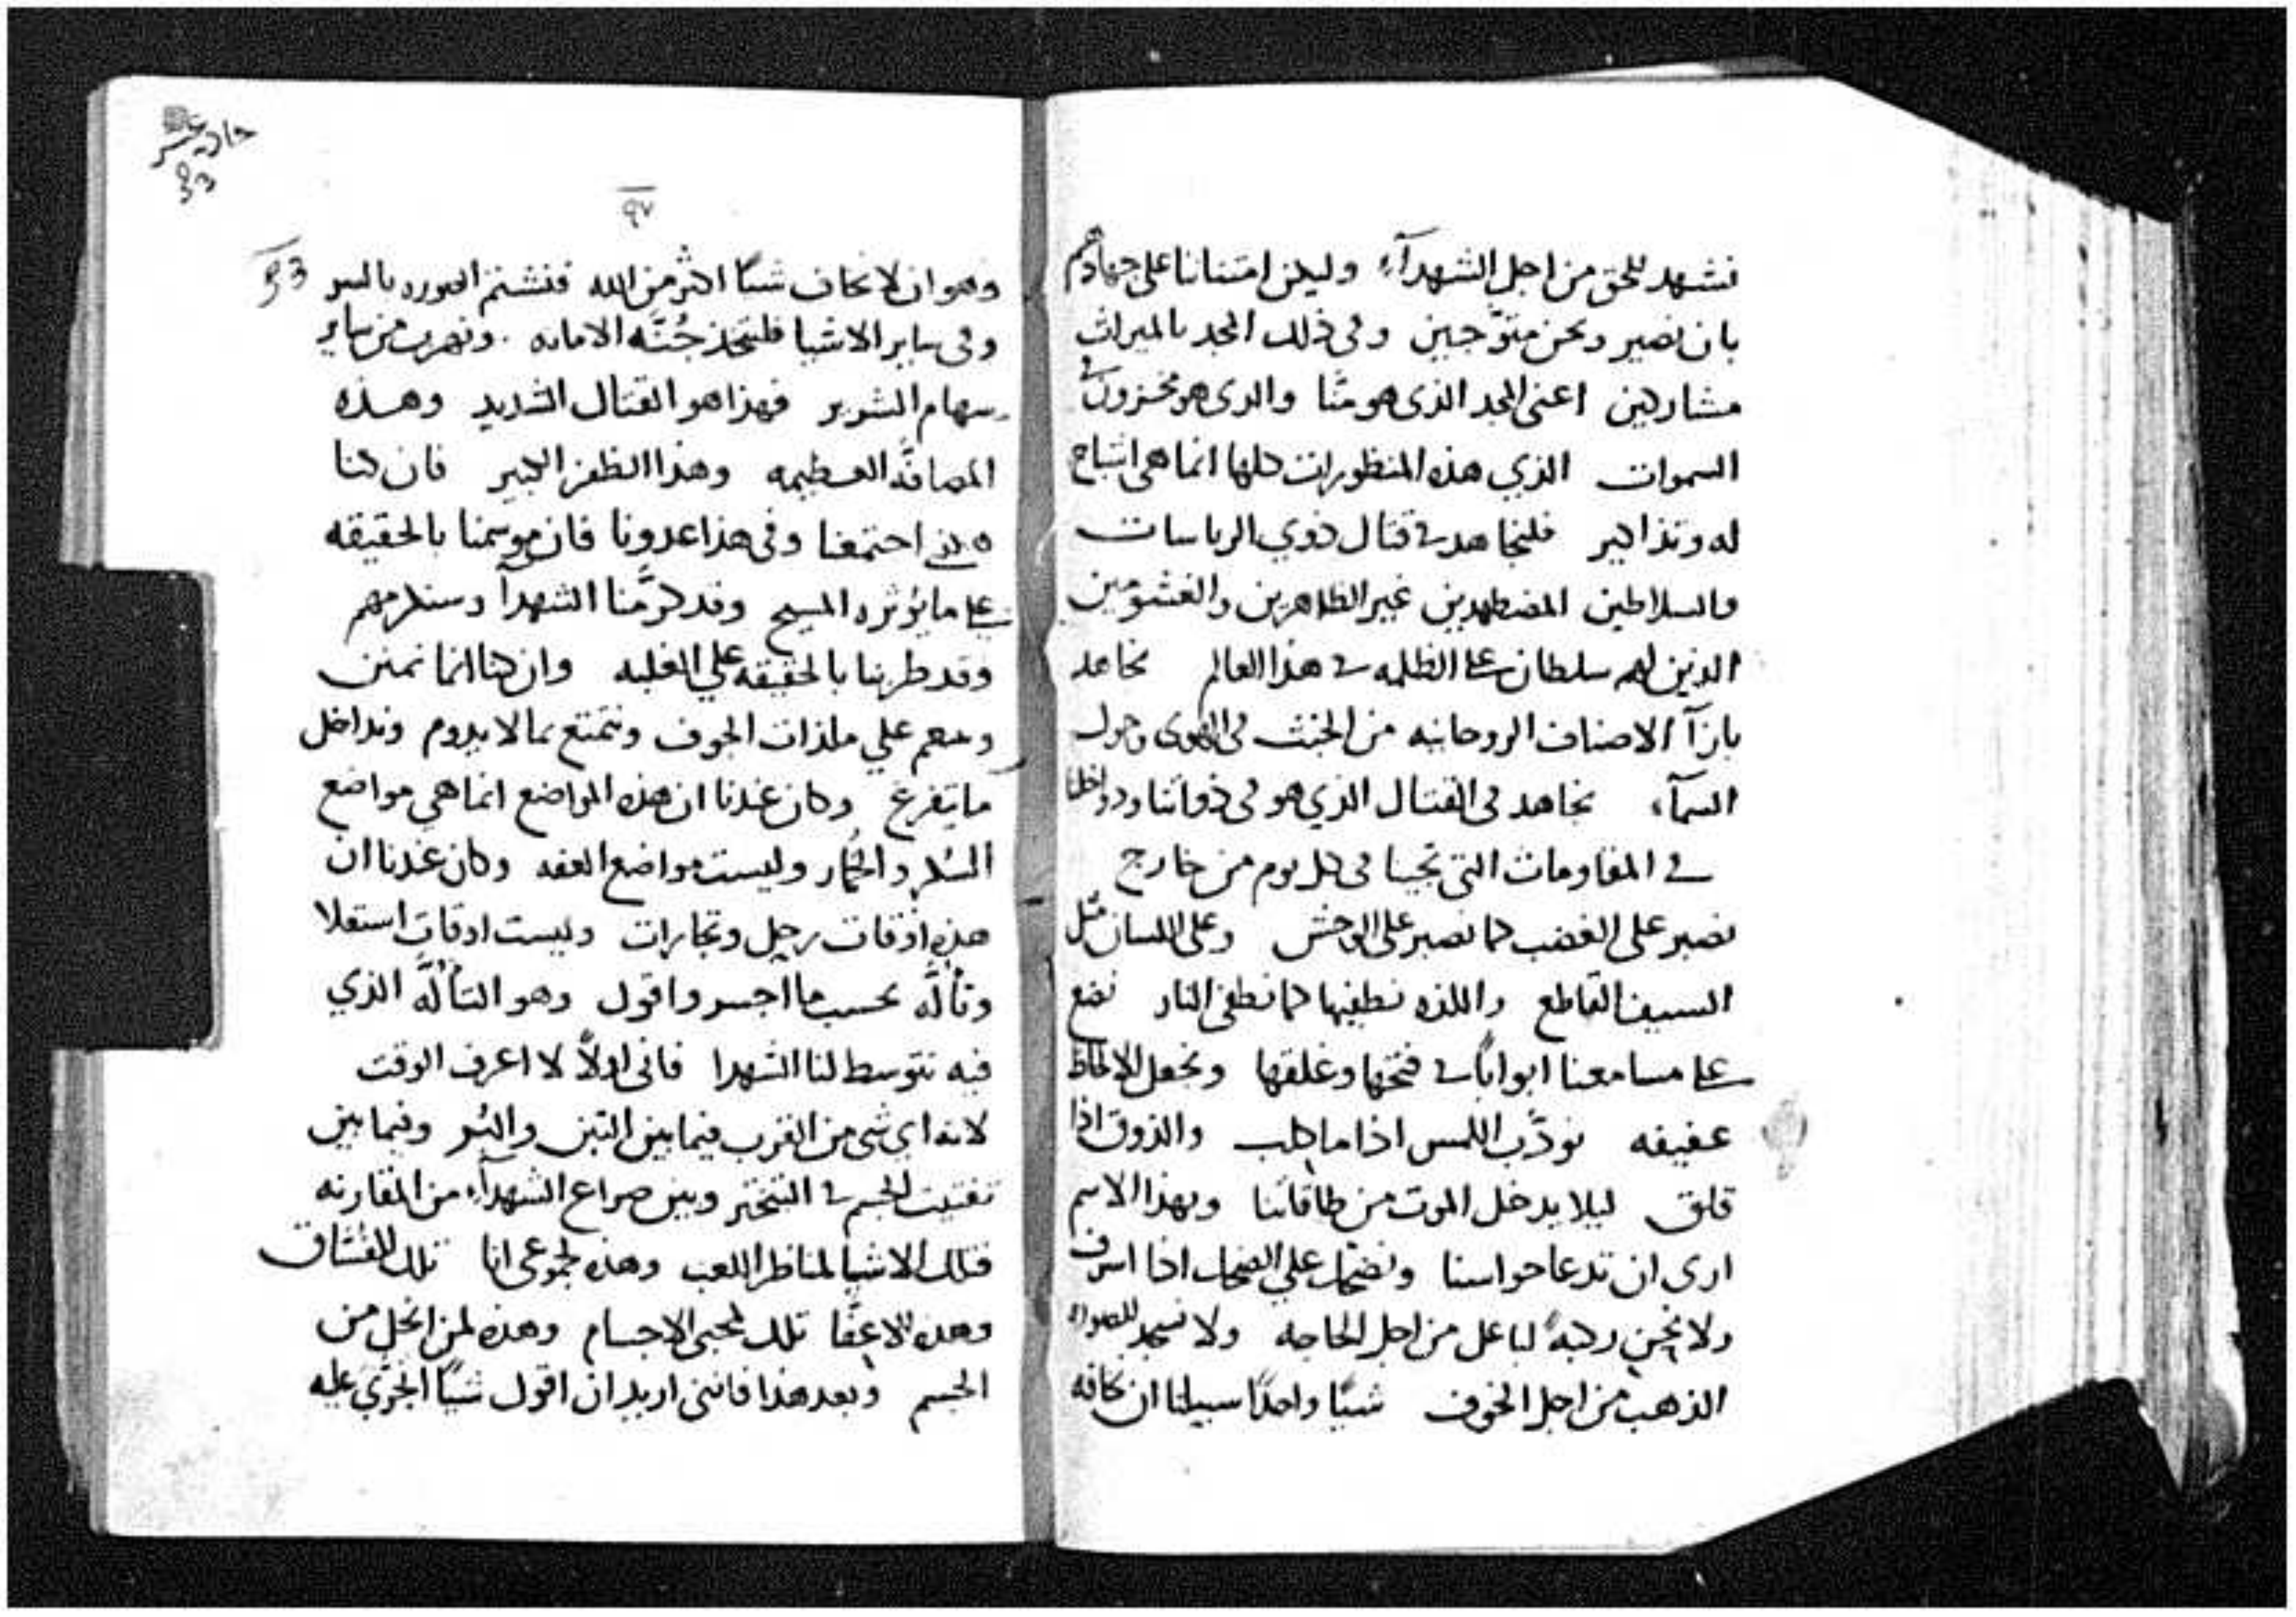 نشهد للحق من اجل الشهدآء وليكن امتناننا على جهادهم
بان نصير ونحن متوّجين وفى ذلك المجد بالميراث
مشاركين اعنى المجد الذى هو منّا والدى هو مخزون فى
السموات الذي هذه المنظورات كلها انما هى اشباح
له وتذاكير فلنجاهد فى قتال ذوي الرياسات
والسلاطين المضطهدين غير الظاهرين والغشومين
الذين لهم سلطان على الظلمه فى هذا العالم نجاهد
بازآ الاصناف الروحانيه من الخبث فى الهوى وحول
السمآء نجاهد فى القتال الذي هو فى ذواتنا ودواخلنا
فى المقاومات التى تجينا فى كل يوم من خارج
نصبر على الغضب كما نصبر على الوحش وعلى اللسان مثل
السيف القاطع واللذه نطفيها كما نطفى النار نضع
على مسامعنا ابوابًا فى فتحها وغلقها ونجعل الالحاظ
عفيفه نودّب اللمس اذا ما كلب والذوق اذا
قلق ليلا يدخل الموت من طاقاتنا وبهذا الاسم
ارى ان تدعا حواسنا ونضحك على الضحك اذا اسرف
ولا نحن ركبةً لباعل من اجل الحاجه ولا نسجد للصوره
الذهب من اجل الخوف شيًا واحدًا سبيلنا ان نخافه
حادي عشر
٩٧
وهو ان لا نخاف شيًا اكثر من الله فنشتم الصوره بالسو
وفى ساير الاشيا فلنتخذ جُنّه الامانه ونهرب من ساير
سهام الشرير فهذا هو القتال الشديد وهذه
المصافّه العظيمه وهذا الظفر الكبير فان كنا
احتمعنا وفى هذا عدونا فان موسمنا بالحقيقه
على ما يؤثره المسيح وقد كرَّمنا الشهدآ وسنكرمهم
وقد طربنا بالحقيقه علي الغلبه وان كنا انما نمتن
وننعم علي ملذات الجوف ونتمتع بما لا يدوم ونداخل
ما يتفرغ وكان عندنا ان هذه المواضع انما هي مواضع
السُكر والخُمار وليست مواضع العفه وكان عندنا ان
هذه اوقات رجل وتجارات وليست اوقات استعلا
وتألّه بحسب ما اجسر واقول وهو التألّه الذي
فيه نتوسط لنا الشهدا فانى اولاً لا اعرف الوقت
لانه اي شى من القرب فيما بين التبن والبُر وفيما بين
تفتيت الجسم فى التبختر وبين صراع الشهدآء من المقارنه
فتلك الاشيا لمناظر اللعب وهذه لجموعى انا تلك للفسّاق
وهذه للاعفّا تلك لمحبى الاجسام وهذه لمن انحل من
الجسم وبعد هذا فاننى اريد ان اقول شيًا اتجرّى عليه